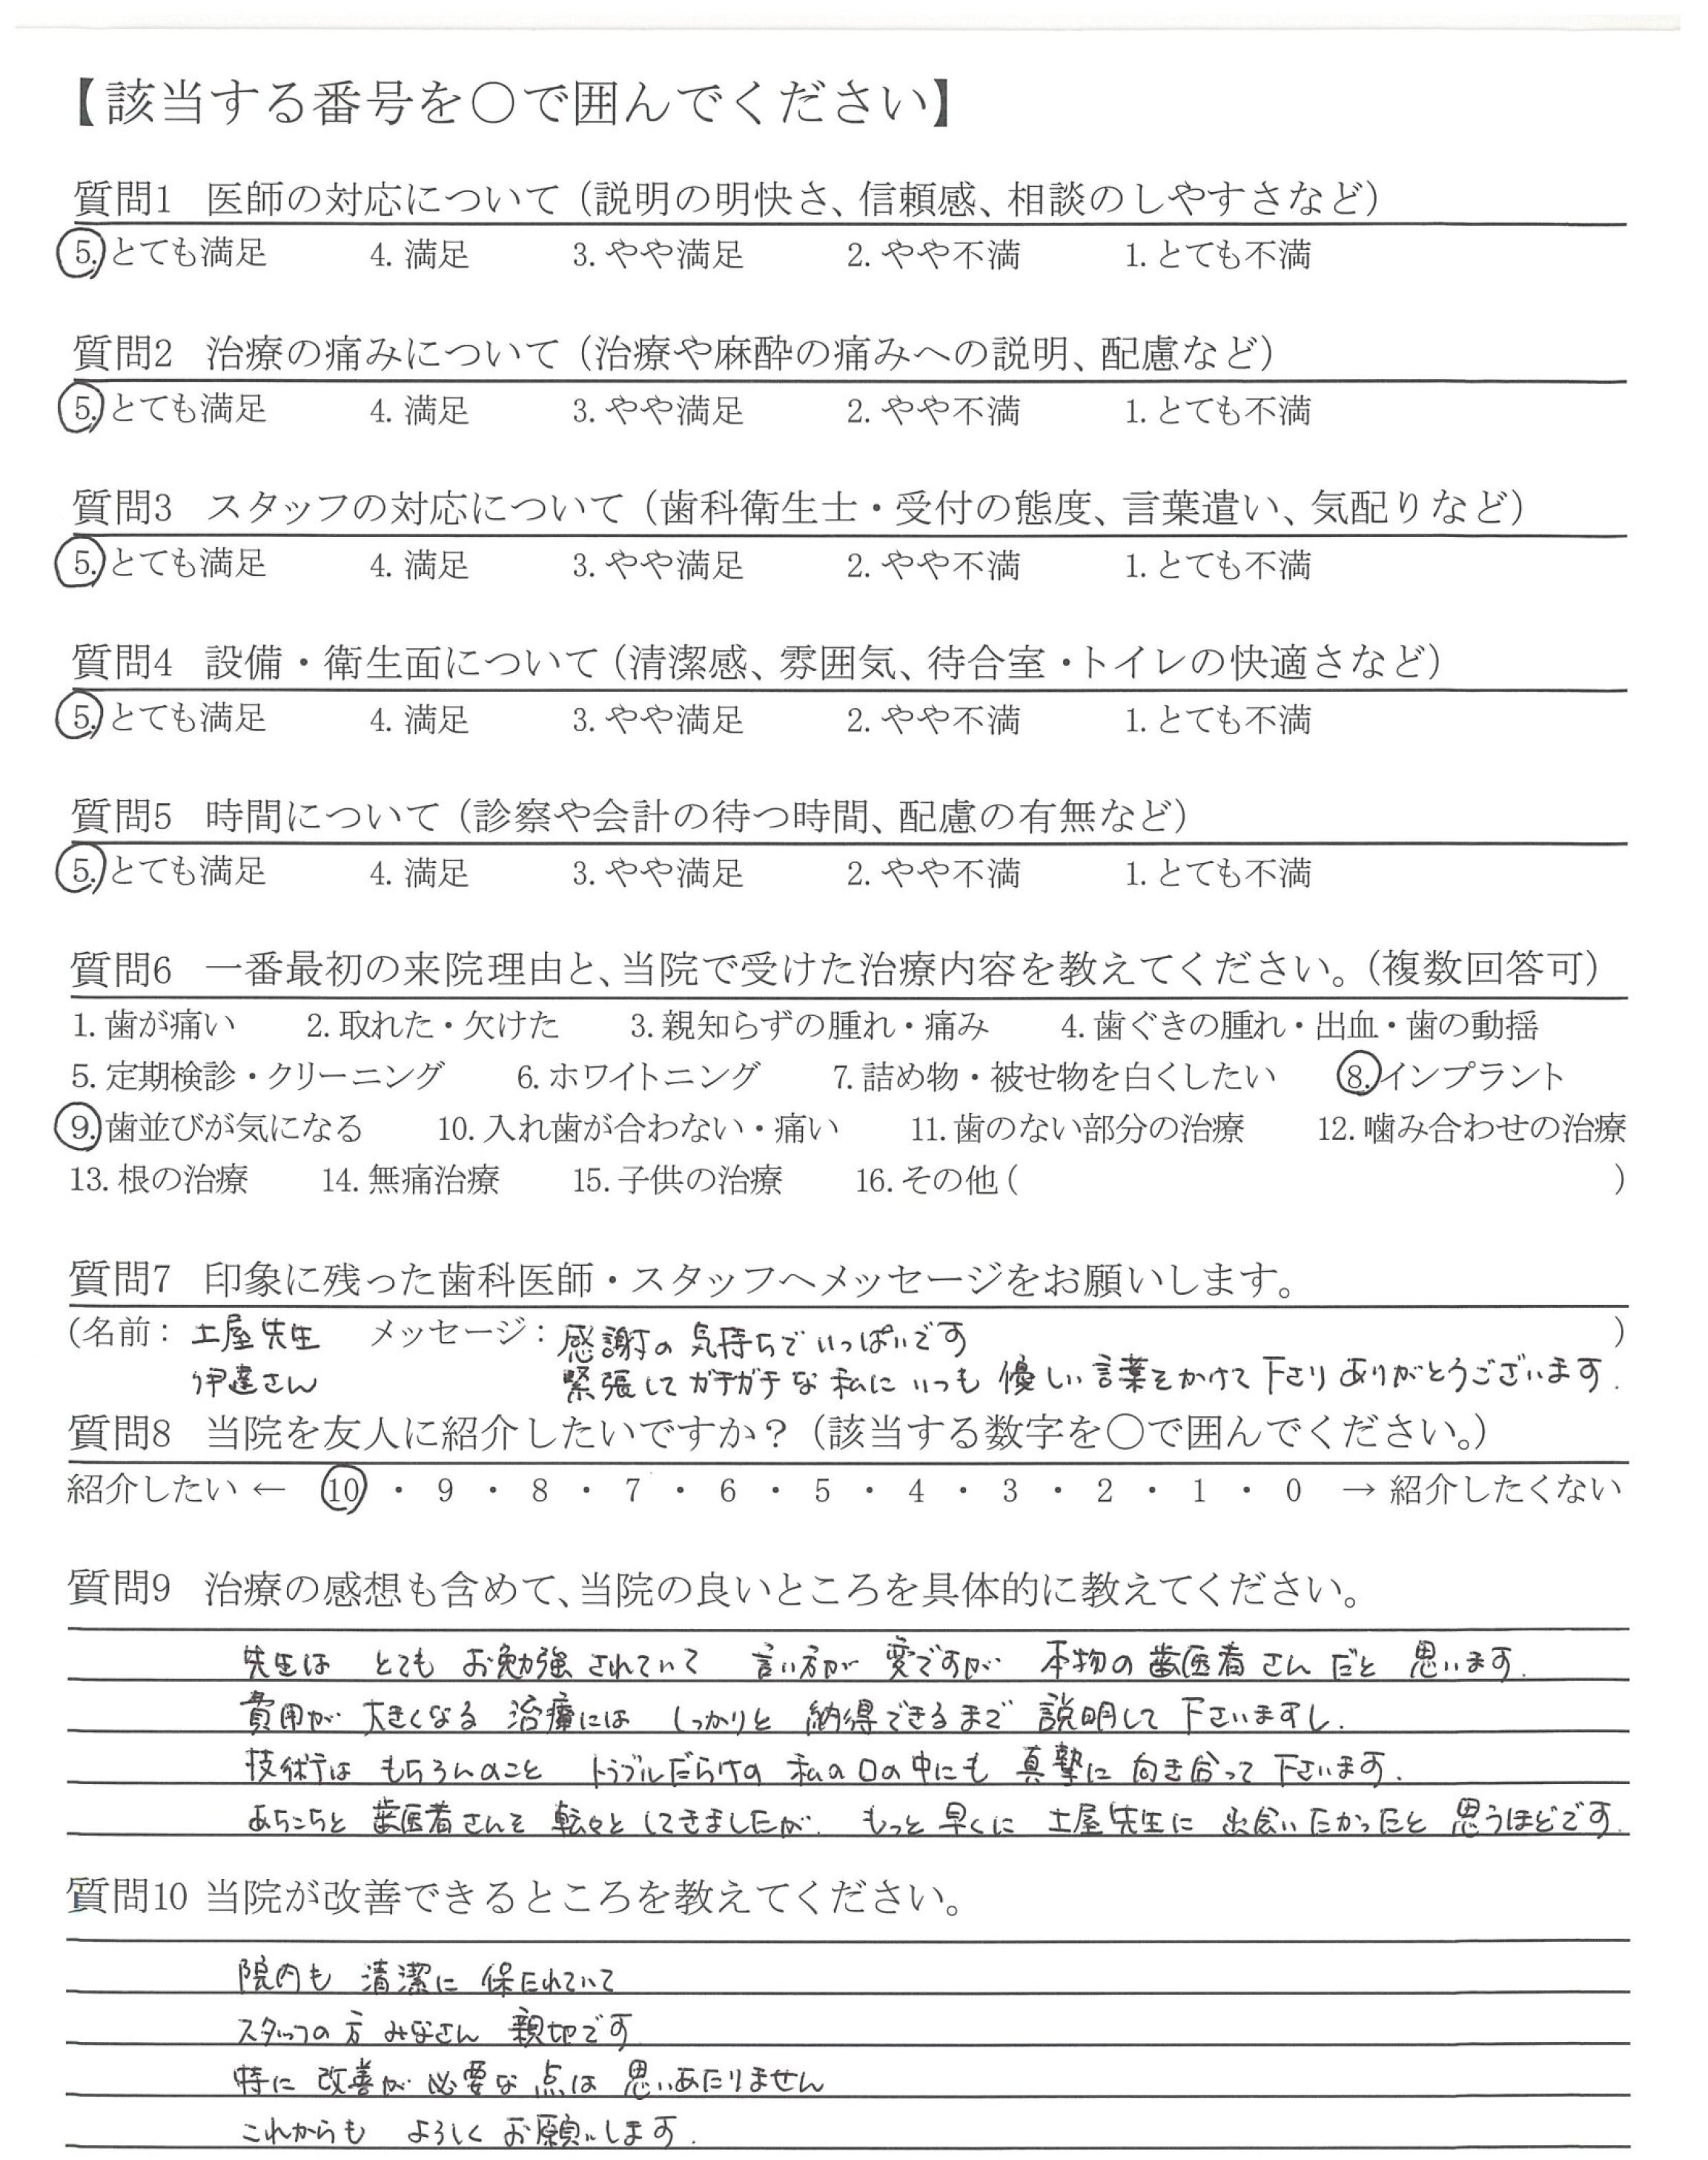 【該当する番号を〇で囲んでください】
質問1 医師の対応について（説明の明快さ、信頼感、相談のしやすさなど）
5. とても満足 4. 満足 3. やや満足 2. やや不満 1. とても不満
質問2 治療の痛みについて（治療や麻酔の痛みへの説明、配慮など）
5. とても満足 4. 満足 3. やや満足 2. やや不満 1. とても不満
質問3 スタッフの対応について（歯科衛生士・受付の態度、言葉遣い、気配りなど）
5. とても満足 4. 満足 3. やや満足 2. やや不満 1. とても不満
質問4 設備・衛生面について（清潔感、雰囲気、待合室・トイレの快適さなど）
5. とても満足 4. 満足 3. やや満足 2. やや不満 1. とても不満
質問5 時間について（診察や会計の待つ時間、配慮の有無など）
5. とても満足 4. 満足 3. やや満足 2. やや不満 1. とても不満
質問6 一番最初の来院理由と、当院で受けた治療内容を教えてください。（複数回答可）
1. 歯が痛い 2. 取れた・欠けた 3. 親知らずの腫れ・痛み 4. 歯ぐきの腫れ・出血・歯の動揺
5. 定期検診・クリーニング 6. ホワイトニング 7. 詰め物・被せ物を白くしたい 8. インプラント
9. 歯並びが気になる 10. 入れ歯が合わない・痛い 11. 歯のない部分の治療 12. 噛み合わせの治療
13. 根の治療 14. 無痛治療 15. 子供の治療 16. その他（ ）
質問7 印象に残った歯科医師・スタッフへメッセージをお願いします。
（名前： 土屋先生 メッセージ： 感謝の気持ちでいっぱいです ）
伊達さん 緊張してガチガチな私にいつも優しい言葉をかけて下さりありがとうございます.
質問8 当院を友人に紹介したいですか？（該当する数字を〇で囲んでください。）
紹介したい ← 10 ・ 9 ・ 8 ・ 7 ・ 6 ・ 5 ・ 4 ・ 3 ・ 2 ・ 1 ・ 0 → 紹介したくない
質問9 治療の感想も含めて、当院の良いところを具体的に教えてください。
先生は とても お勉強されていて 言い方が 変ですが 本物の歯医者さんだと 思います.
費用が 大きくなる 治療には しっかりと 納得できるまで 説明して 下さいますし.
技術は もちろんのこと トラブルだらけの 私の口の中にも 真摯に 向き合って 下さいます.
あちこちと 歯医者さんを 転々としてきましたが. もっと早くに 土屋先生に 出会いたかったと 思うほどです.
質問10 当院が改善できるところを教えてください。
院内も 清潔に 保たれていて
スタッフの方 みなさん 親切です
特に 改善が 必要な 点は 思いあたりません
これからも よろしく お願いします.